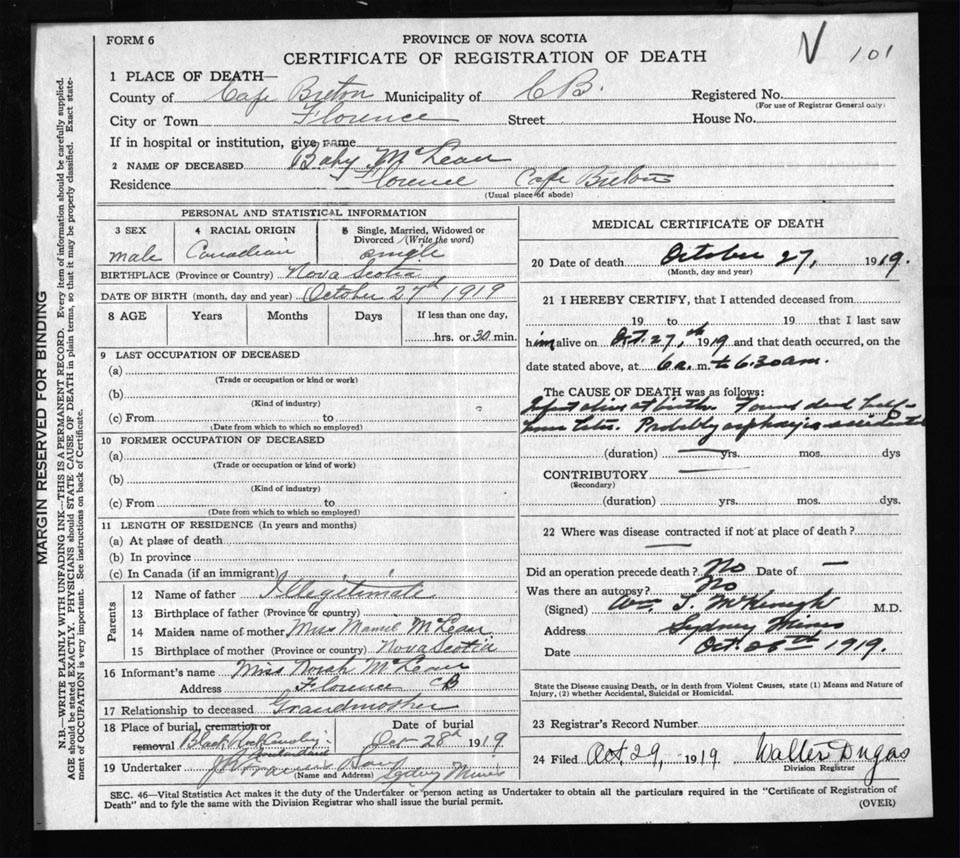 FORM 6
PROVINCE OF NOVA SCOTIA
CERTIFICATE OF REGISTRATION OF DEATH
101
1 PLACE OF DEATH—
County of Cape Breton Municipality of C B. Registered No.
(For use of Registrar General only)
City or Town Florence Street House No.
If in hospital or institution, give name
2 NAME OF DECEASED Baby McLean
Residence Florence Cape Breton
(Usual place of abode)
PERSONAL AND STATISTICAL INFORMATION
3 SEX 4 RACIAL ORIGIN 5 Single, Married, Widowed or Divorced (Write the word)
male Canadian single
BIRTHPLACE (Province or Country) Nova Scotia
DATE OF BIRTH (month, day and year) October 27th 1919
8 AGE Years Months Days If less than one day,
hrs. or 30 min.
9 LAST OCCUPATION OF DECEASED
(a)
(Trade or occupation or kind or work)
(b)
(Kind of industry)
(c) From to
(Date from which to which so employed)
10 FORMER OCCUPATION OF DECEASED
(a)
(Trade or occupation or kind of work)
(b)
(Kind of industry)
(c) From to
(Date from which to which so employed)
11 LENGTH OF RESIDENCE (In years and months)
(a) At place of death
(b) In province
(c) In Canada (if an immigrant)
Parents
12 Name of father Illegitimate
13 Birthplace of father (Province or country)
14 Maiden name of mother Miss McLean
15 Birthplace of mother (Province or country) Nova Scotia
16 Informant's name Miss Norah McLean
Address Florence CB
17 Relationship to deceased Grandmother
18 Place of burial, cremation or removal Black Rock Date of burial
Oct 28th 1919
19 Undertaker Sydney Mines
(Name and Address)
MEDICAL CERTIFICATE OF DEATH
20 Date of death October 27, 1919.
(Month, day and year)
21 I HEREBY CERTIFY, that I attended deceased from
19 to 19 that I last saw
him alive on Oct. 27,th 1919 and that death occurred, on the
date stated above, at 6 a. m. to 6.30 a.m.
The CAUSE OF DEATH was as follows:
Infant alive at birth. Found dead half
hour later. Probably asphyxia accidental
(duration) yrs. mos. dys
CONTRIBUTORY
(Secondary)
(duration) yrs. mos. dys.
22 Where was disease contracted if not at place of death?
Did an operation precede death? No Date of —
Was there an autopsy? No
(Signed) Wm. M.D.
Address Sydney Mines
Date Oct. 1919.
State the Disease causing Death, or in death from Violent Causes, state (1) Means and Nature of
Injury, (2) whether Accidental, Suicidal or Homicidal.
23 Registrar's Record Number
24 Filed Oct 29, 1919 Walter Dugas
Division Registrar
SEC. 46—Vital Statistics Act makes it the duty of the Undertaker or person acting as Undertaker to obtain all the particulars required in the "Certificate of Registration of
Death" and to fyle the same with the Division Registrar who shall issue the burial permit.
(OVER)
MARGIN RESERVED FOR BINDING
N.B.—WRITE PLAINLY WITH UNFADING INK—THIS IS A PERMANENT RECORD. Every item of information should be carefully supplied.
AGE should be stated EXACTLY. PHYSICIANS should STATE CAUSE OF DEATH in plain terms, so that it may be properly classified. Exact state-
ment of OCCUPATION is very important. See instructions on back of Certificate.